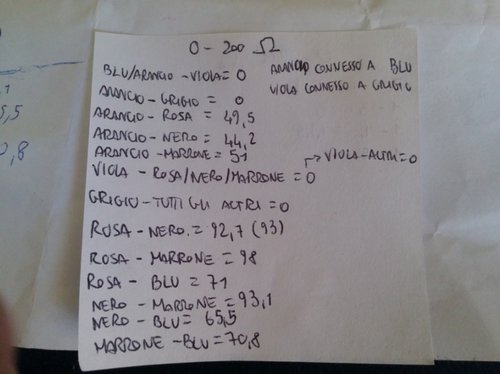 0 - 200 Ω
BLU/ARANCIO - VIOLA = 0
ARANCIO CONNESSO A BLU
ARANCIO - GRIGIO = 0
VIOLA CONNESSO A GRIGIO
ARANCIO - ROSA = 49,5
ARANCIO - NERO = 44,2
ARANCIO - MARRONE = 51
→ VIOLA - ALTRI = 0
VIOLA - ROSA/NERO/MARRONE = 0
GRIGIO - TUTTI GLI ALTRI = 0
ROSA - NERO. = 92,7 (93)
ROSA - MARRONE = 98
ROSA - BLU = 71
NERO - MARRONE = 93,1
NERO - BLU = 65,5
MARRONE - BLU = 70,8
5,5
0,8